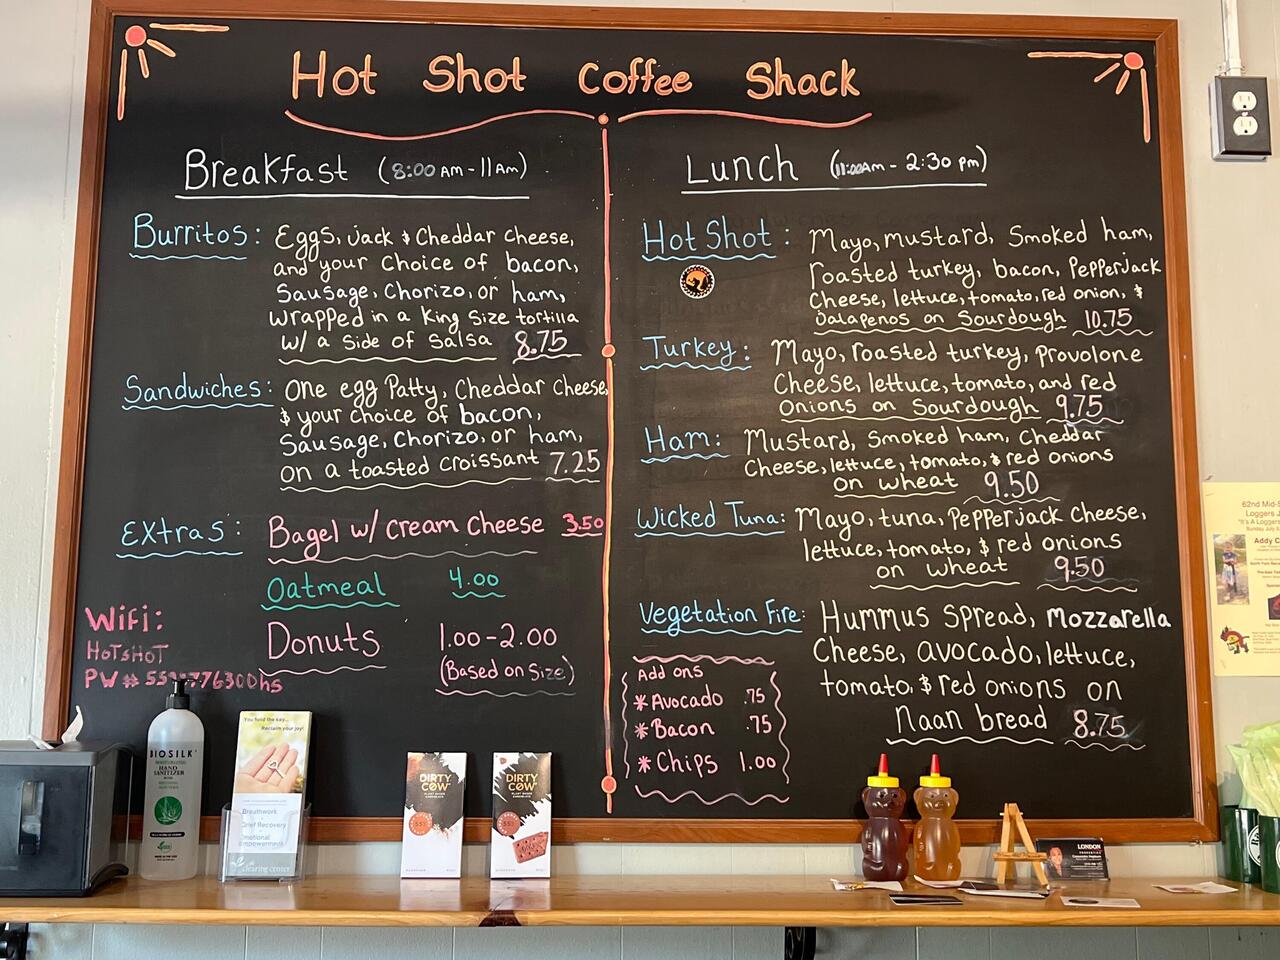 Hot Shot Coffee Shack
Breakfast (8:00 AM - 11 AM)
Burritos: Eggs, Jack & Cheddar Cheese,
and your Choice of bacon,
Sausage, Chorizo, or ham,
wrapped in a King Size tortilla
w/ a side of Salsa 8.75
Sandwiches: One egg Patty, Cheddar Cheese,
& your choice of bacon,
Sausage, Chorizo, or ham,
on a toasted croissant 7.25
Extras: Bagel w/ Cream Cheese 3.50
Oatmeal 4.00
Donuts 1.00-2.00
(Based on Size)
WiFi:
HOTSHOT
PW #
Lunch (11:00AM - 2:30 pm)
Hot Shot: Mayo, mustard, Smoked ham,
roasted turkey, bacon, Pepperjack
Cheese, lettuce, tomato, red onion, &
Jalapenos on Sourdough 10.75
Turkey: Mayo, roasted turkey, Provolone
Cheese, lettuce, tomato, and red
onions on Sourdough 9.75
Ham: Mustard, Smoked ham, Cheddar
Cheese, lettuce, tomato, & red onions
on wheat 9.50
Wicked Tuna: Mayo, tuna, Pepperjack Cheese,
lettuce, tomato, & red onions
on wheat 9.50
Vegetation Fire: Hummus Spread, Mozzarella
Cheese, avocado, lettuce,
tomato, & red onions on
Naan bread 8.75
Add ons
* Avocado .75
* Bacon .75
* Chips 1.00
BIOSILK
HAND
SANITIZER
You hold the key...
Reclaim your joy!
Breathwork
Grief Recovery
Emotional
Empowerment
clearing center
DIRTY
COW
PLANT BASED
CHOCOLATE
DIRTY
COW
PLANT BASED
CHOCOLATE
LONDON
PROPERTIES
62nd Mid-
Loggers J
"It's A Logger
Sunday July
Addy C